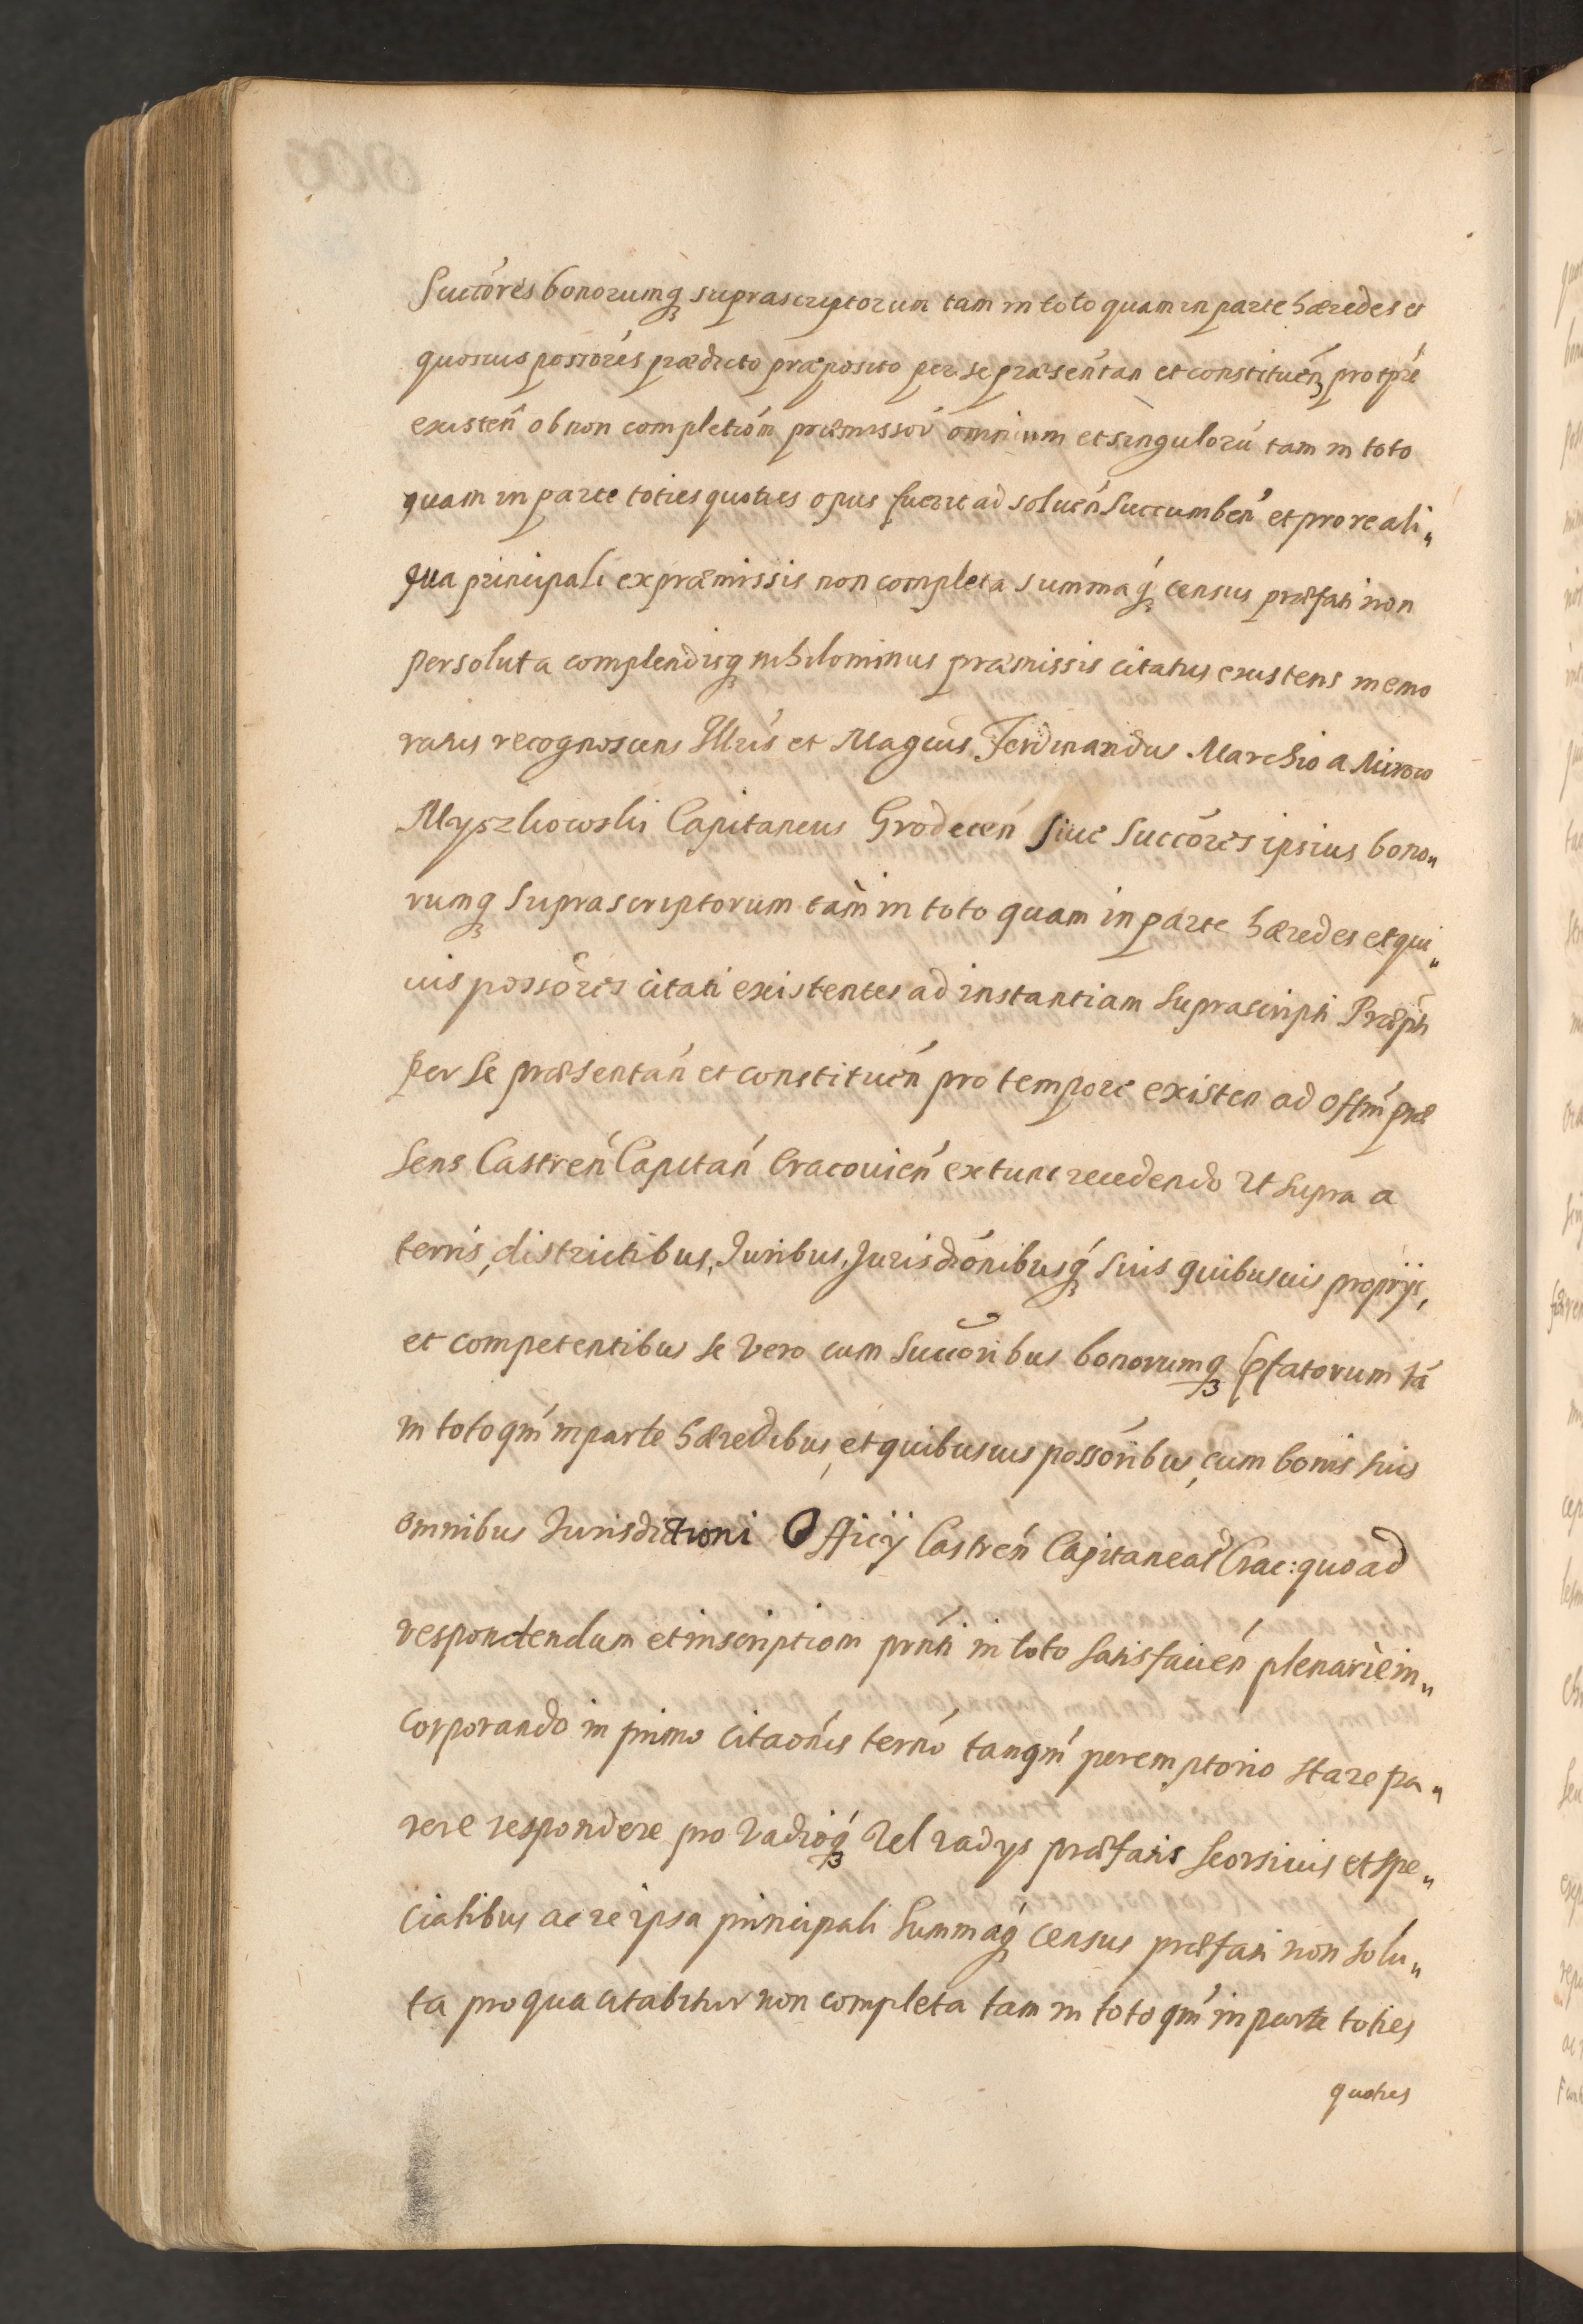 Succóres bonorumq́ suprascriptorum tam in toto quam in parte hæredes et
quosuis possóres prædicto præposito per se præsentan et constituen̄ pro tpre
existen̄ ob non completióm præmissorū omnium et singulorū tam in toto
quam in parte toties quoties opus fuerit ad soluen̄ succumben̄ et pro re ali„
qua principali ex præmissis non completa summaq́ census præfati non
persoluta complendisq́ nihilominus præmissis citatus existens memo
ratus recognoscens Illris et Magcus Ferdinandus Marchio a Mirow
Myszkowski Capitaneus Grodecen̄ siue Succóres ipsius bono„
rumq́ suprascriptorum tàm in toto quam in parte hæredes et qui„
uis possóres citati existentes ad instantiam suprascripti Præpti
per se præsentan̄ et constituen̄ pro tempore existen ad offm̄ præ
sens Castren̄ Capitan̄ Cracouien̄ extunc recedendo ut supra a
terris, districtibus, Juribus, Jurisdiónibusq́ suis quibusuis proprijs,
et competentibus se vero cum succóribus bonorumq́ pfatorum tā
in toto qm̄ in parte hæredibus, et quibusuis possóribus, cum bonis suis
omnibus Jurisdictioni Officij Castren̄ Capitaneal Crac: quoad
respondendum et inscriptiom prn̄ti in toto satisfacien̄ plenarie in„
corporando in primo citaónis termó tanqm̄ peremptorio stare pa„
rere respondere pro vadioq́ vel vadys præfatis seorsiuis et spe„
cialibus ac re ipsa principali summaq́ census præfati non solu„
ta pro qua citabitur non completa tam in toto qm̄ in parte toties
quoties